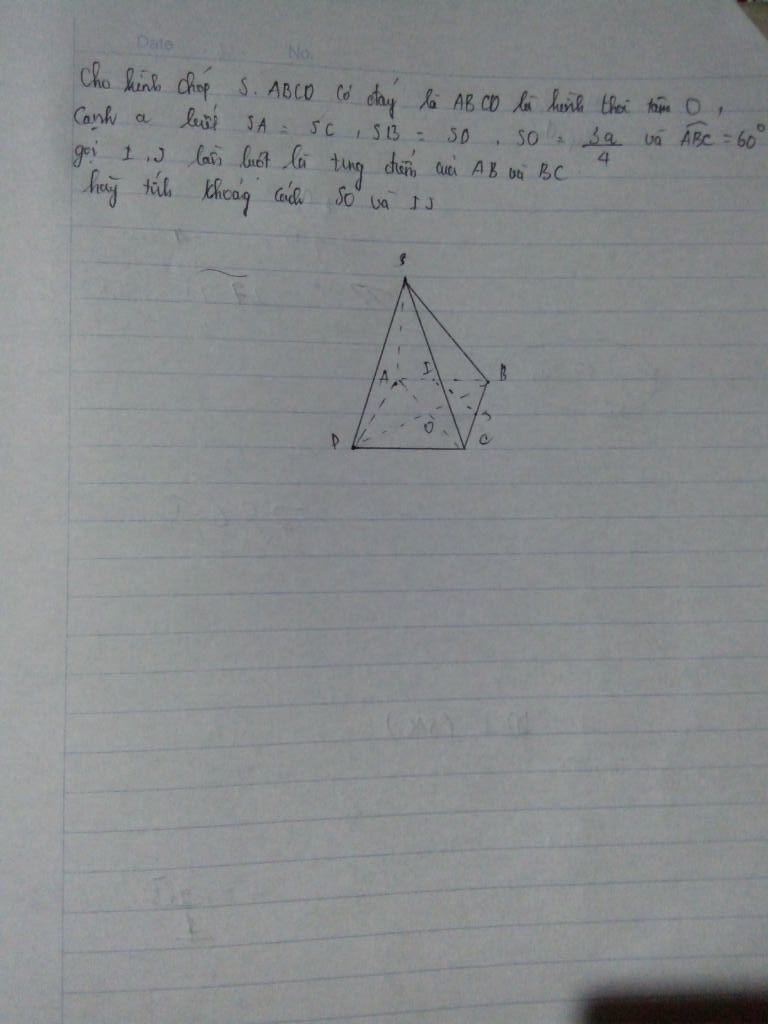 Date No.
Cho hình chóp S. ABCD có đáy là ABCD là hình thoi tâm O,
Cạnh a biết SA = SC, SB = SD, SO = 3a/4 và ABC = 60°
gọi I, J lần lượt là trung điểm của AB và BC
hãy tính khoảng cách SO và IJ
S
A I B
J
D O C